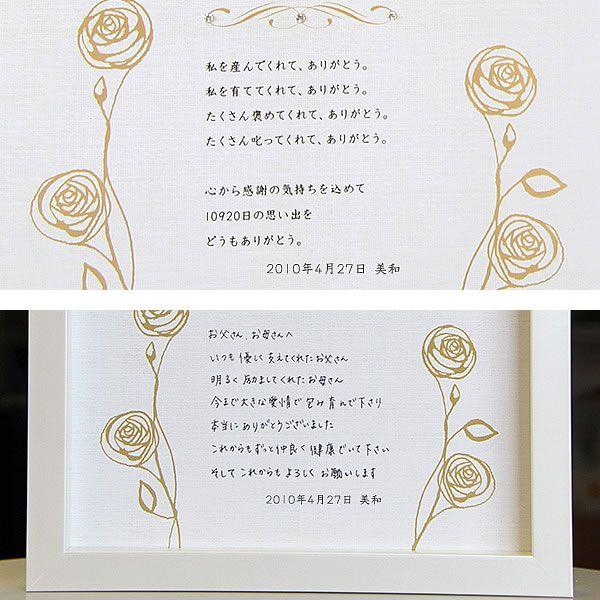 私を産んでくれて、ありがとう。
私を育ててくれて、ありがとう。
たくさん褒めてくれて、ありがとう。
たくさん叱ってくれて、ありがとう。
心から感謝の気持ちを込めて
10920日の思い出を
どうもありがとう。
2010年4月27日 美和
お父さん、お母さんへ
いつも優しく支えてくれたお父さん
明るく励ましてくれたお母さん
今まで大きな愛情で包み育んで下さり
本当にありがとうございました
これからもずっと仲良く健康でいて下さい
そしてこれからもよろしくお願いします
2010年4月27日 美和